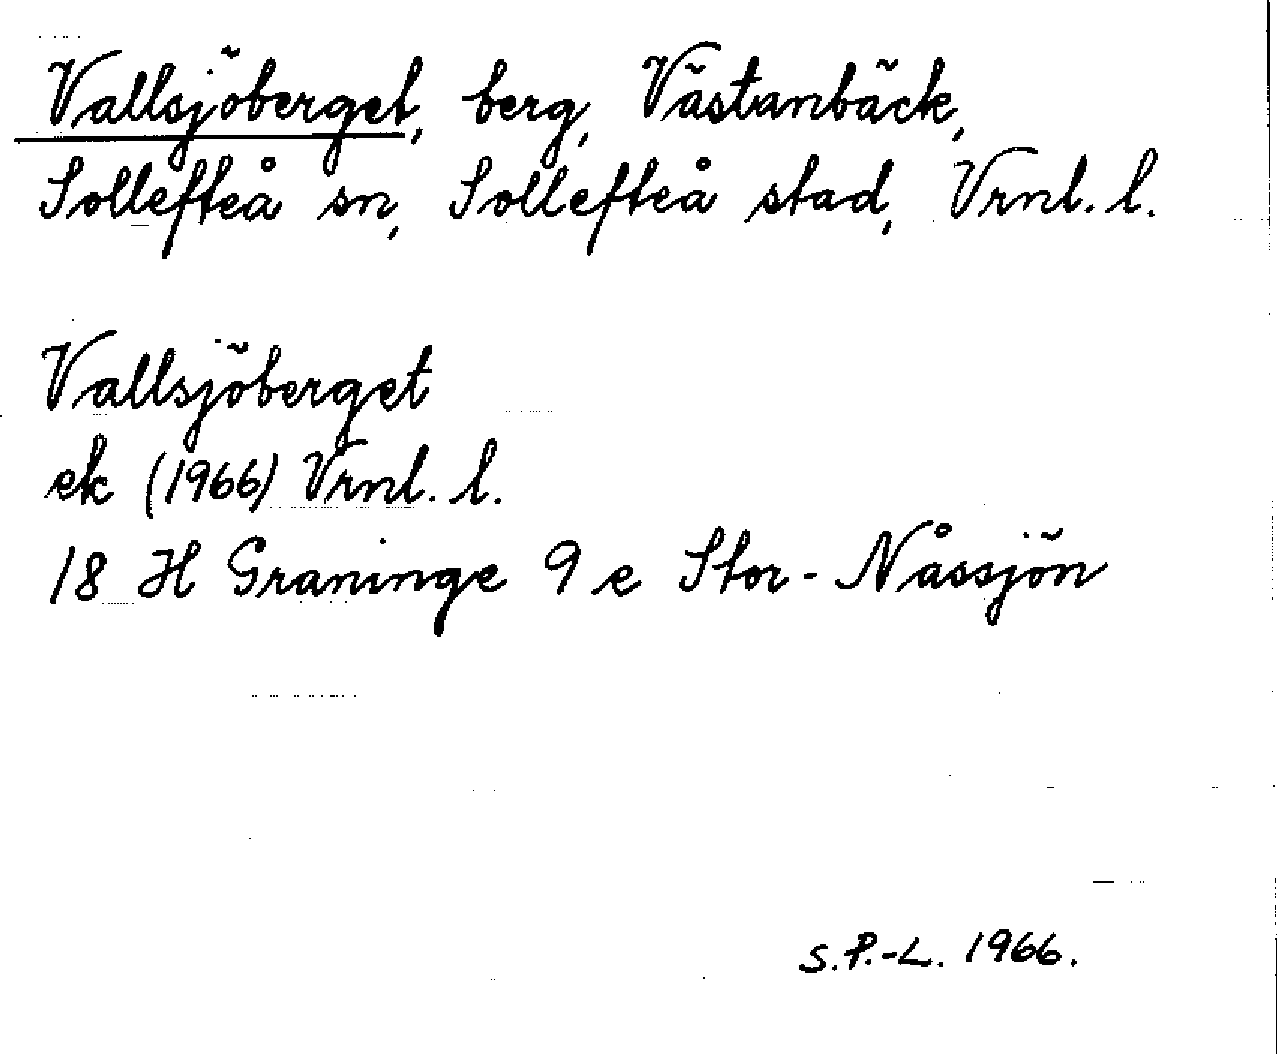 Vallsjöberget, berg, Västanbäck,
Sollefteå sn, Sollefteå stad, Vrnl. l.
Vallsjöberget
ek (1966) Vrnl. l.
18 H Graninge 9 e Stor-Nåssjön
S.P.-L. 1966.